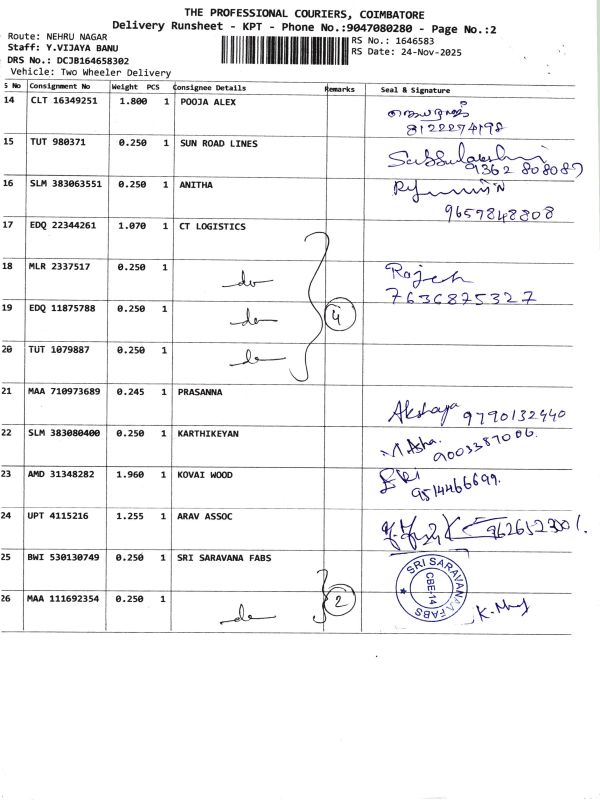 THE PROFESSIONAL COURIERS, COIMBATORE
Delivery Runsheet - KPT - Phone No.:9047080280 - Page No.:2
Route: NEHRU NAGAR
Staff: Y.VIJAYA BANU
DRS No.: DCJB164658302
Vehicle: Two Wheeler Delivery
RS No.: 1646583
RS Date: 24-Nov-2025
S No Consignment No Weight PCS Consignee Details Remarks Seal & Signature
14 CLT 16349251 1.800 1 POOJA ALEX
8122274198
15 TUT 980371 0.250 1 SUN ROAD LINES
9362 808087
16 SLM 383063551 0.250 1 ANITHA
9657848808
17 EDQ 22344261 1.070 1 CT LOGISTICS
18 MLR 2337517 0.250 1 do Rajesh
7636875327
19 EDQ 11875788 0.250 1 do 4
20 TUT 1079887 0.250 1 do
21 MAA 710973689 0.245 1 PRASANNA Akshaya 9790132440
22 SLM 383080400 0.250 1 KARTHIKEYAN Asha. 9003387006.
23 AMD 31348282 1.960 1 KOVAI WOOD
9514466699.
24 UPT 4115216 1.255 1 ARAV ASSOC
25 BWI 530130749 0.250 1 SRI SARAVANA FABS
SRI SARAVANAA FABS
CBE-14
26 MAA 111692354 0.250 1 do 2